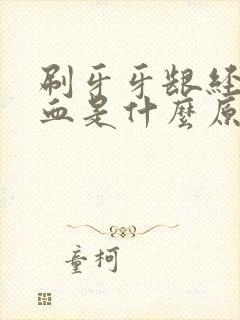 刷牙牙龈经
血是什麼原
童柯